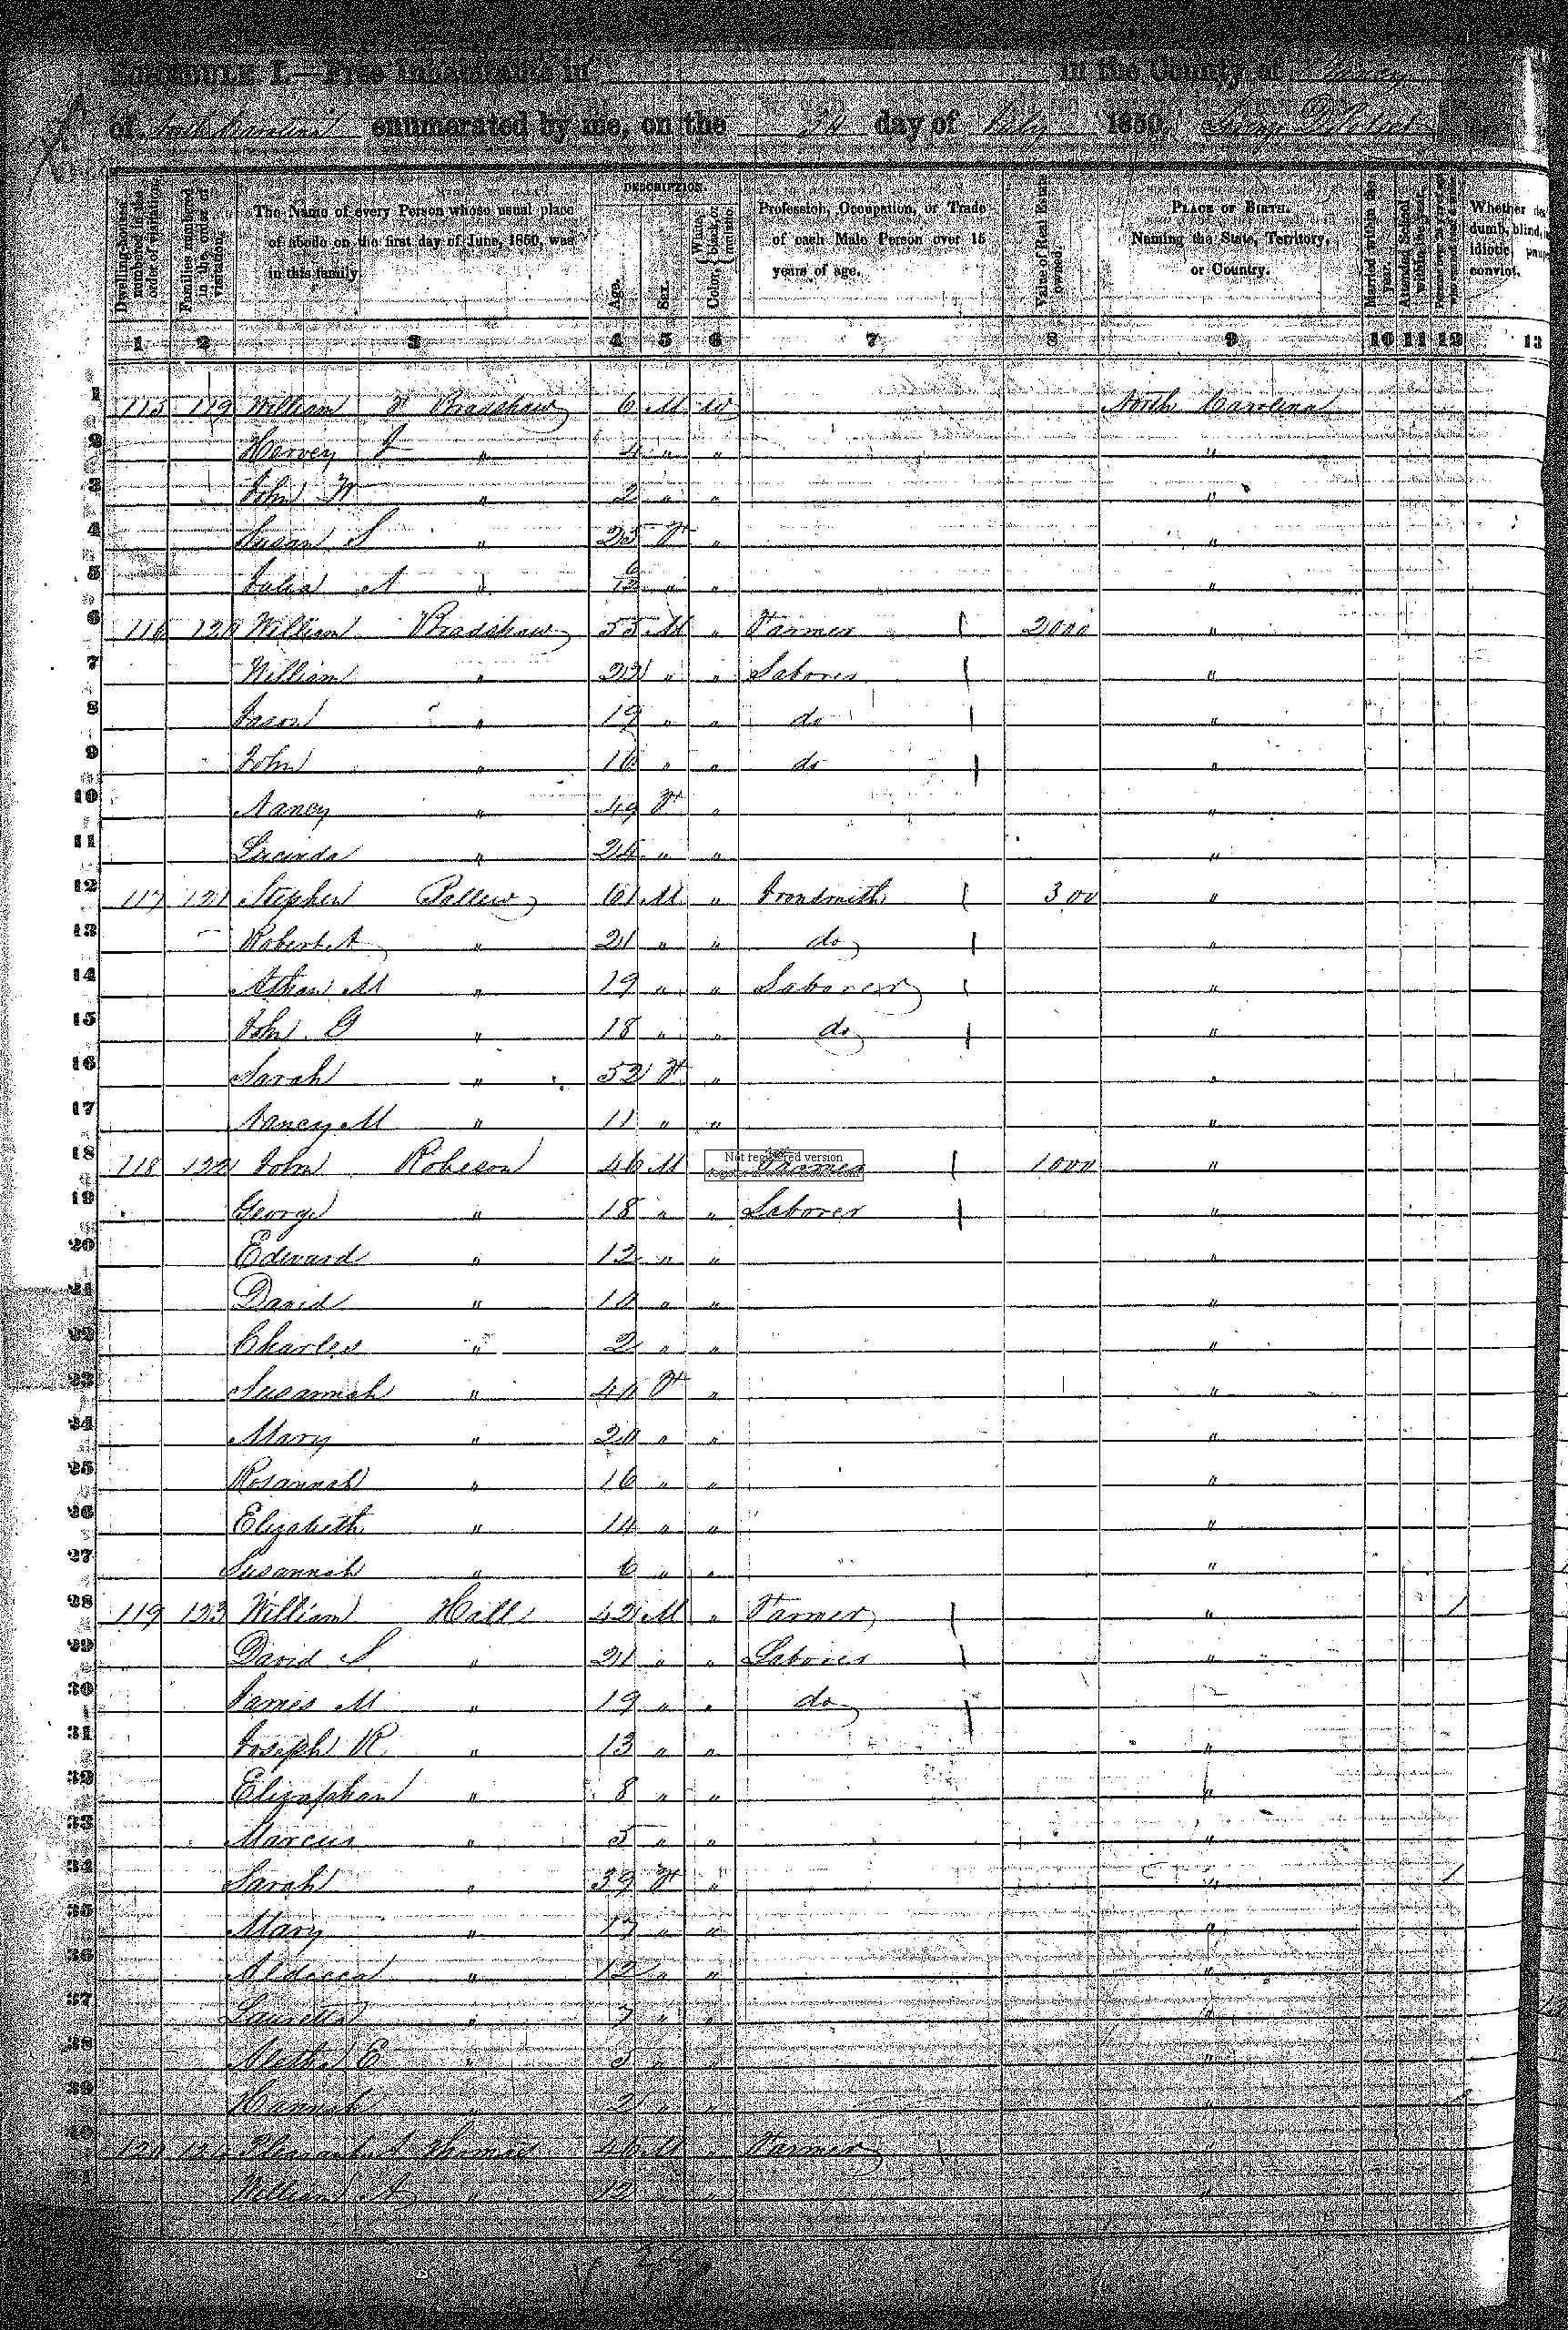 SCHEDULE I.—Free Inhabitants in in the County of
of North Carolina enumerated by me, on the day of July 1850. George
Dwelling-houses numbered in the order of visitation.
Families numbered in the order of visitation.
The Name of every Person whose usual place of abode on the first day of June, 1850, was in this family.
DESCRIPTION.
Age.
Sex.
Color, White, black, or mulatto.
Profession, Occupation, or Trade of each Male Person over 15 years of age.
Value of Real Estate owned.
PLACE OF BIRTH. Naming the State, Territory, or Country.
Married within the year.
Attended School within the year.
Whether deaf dumb, blind, idiotic, convict.
1 2 3 4 5 6 7 8 9 10 11 12 13
1 115 119 William Bradshaw 6 M W North Carolina
2 Harvey " 4 " " "
3 John W " 2 " " "
4 Susan S " 25 F " "
5 Julia A " 6/12 " " "
6 116 120 William Bradshaw 55 M " Farmer 2000 "
7 William " 22 " " Laborer "
8 Jason " 19 " " do "
9 John " 16 " " do "
10 Nancy " 49 F " "
11 Lucinda " 24 " " "
12 117 121 Stephen Ballew 61 M " Ironsmith 300 "
13 Robert A " 21 " " do "
14 Athan M " 19 " " Laborer "
15 John G " 18 " " do "
16 Sarah " 52 F " "
17 Nancy M " 11 " " "
18 118 122 John Robeson 46 M Farmer 1000 "
Not registered version
19 George " 18 " " Laborer "
20 Edward " 12 " " "
21 David " 10 " " "
22 Charles " 2 " " "
23 Susannah " 40 F " "
24 Mary " 20 " " "
25 Rosannah " 16 " " "
26 Elizabeth " 14 " " "
27 Susannah " 6 " " "
28 119 123 William Hall 42 M " Farmer " 1
29 David S " 21 " " Laborer "
30 James M " 19 " " do "
31 Joseph R " 13 " " "
32 Elizaphan " 8 " " "
33 Marcus " 5 " " "
34 Sarah " 39 F " " 1
35 Mary " 17 " " "
36 " 12 " " "
37 Lauretta " 7 " " "
38 Aletha E " 5 " " "
39 Hannah " 2 " " "
40 120 124 Pleasant A Thomas 46 M " Farmer "
41 William A " 12 " "